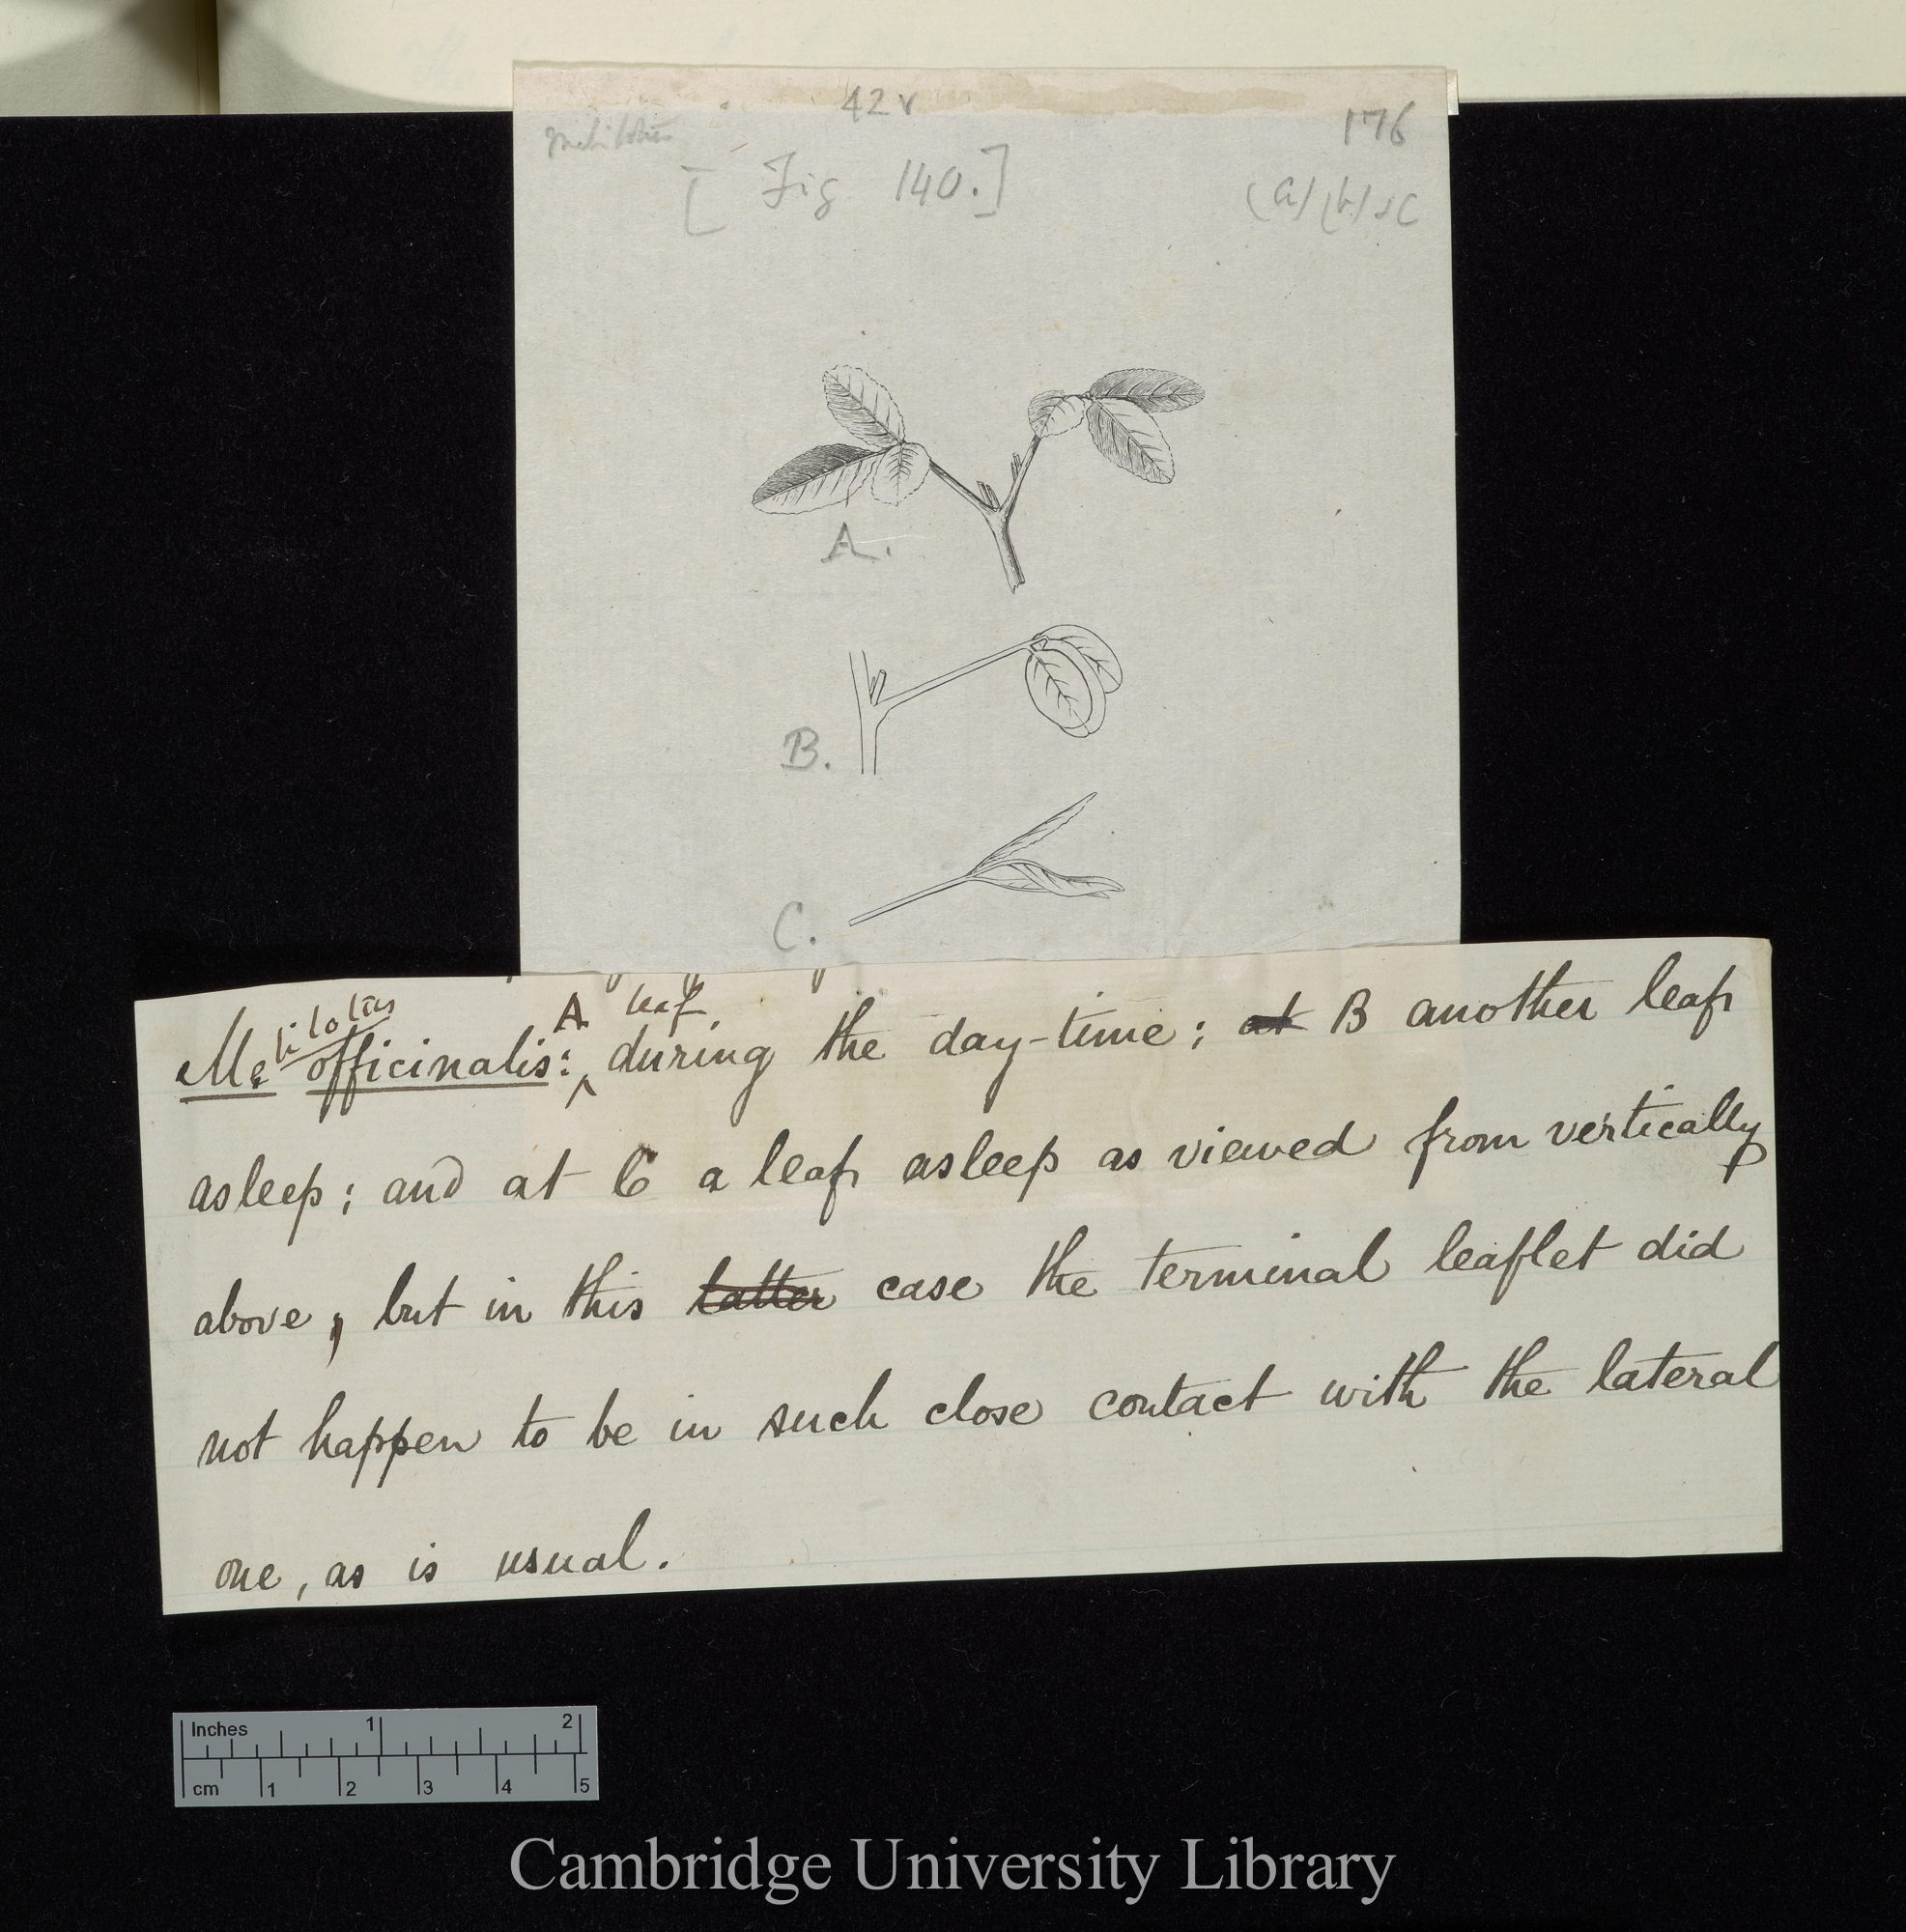 42v
176
Melilotus
[Fig 140.]
(a) (b) & C
A.
B.
C.
lilotus A leaf,
Me officinalis: during the day-time; at B another leaf
asleep; and at C a leaf asleep as viewed from vertically
above, but in this latter case the terminal leaflet did
not happen to be in such close contact with the lateral
one, as is usual.
Inches 1 2
cm 1 2 3 4 5
Cambridge University Library